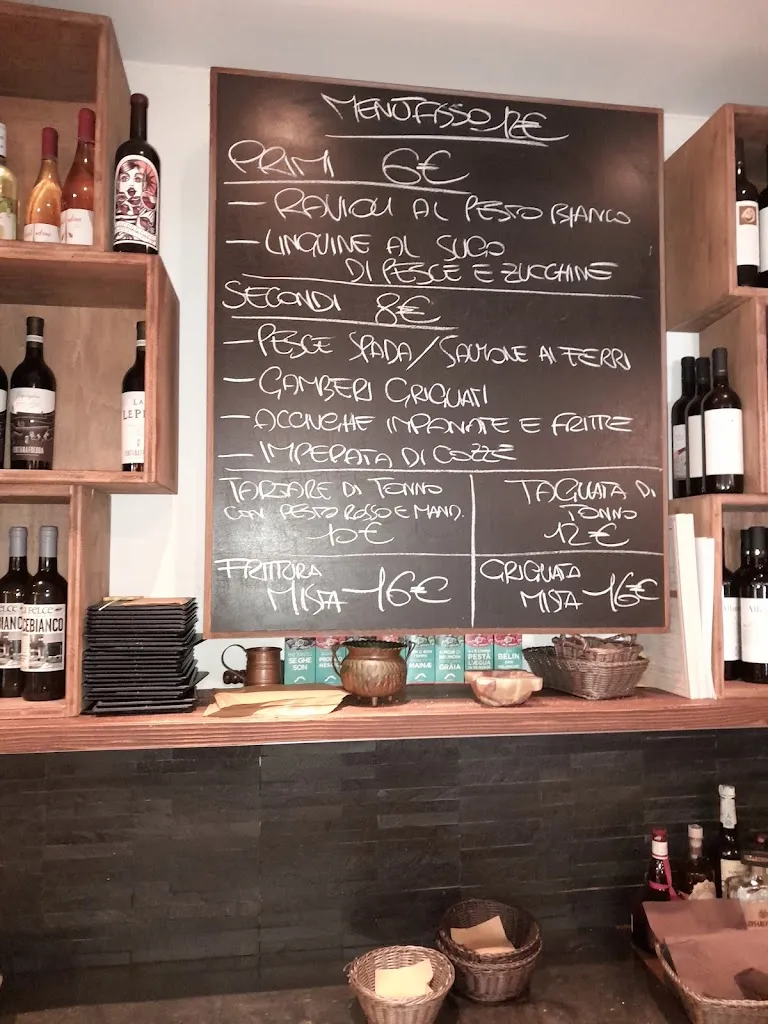 MENU FISSO 12€
PRIMI 6€
- RAVIOLI AL PESTO BIANCO
- LINGUINE AL SUGO
DI PESCE E ZUCCHINE
SECONDI 8€
- PESCE SPADA/SALMONE AI FERRI
- GAMBERI GRIGLIATI
- ACCIUGHE IMPANATE E FRITTE
- IMPEPATA DI COZZE
TARTARE DI TONNO
CON PESTO ROSSO E MAND.
10€
TAGLIATA DI
TONNO
12€
FRITTURA
MISTA 16€
GRIGLIATA
MISTA 16€
LA
LEPI
FELCE
CEBIANCO
SE GHE
SON
MAINÆ
GRÀIA
PESTÀ
L'ÆGUA
BELIN